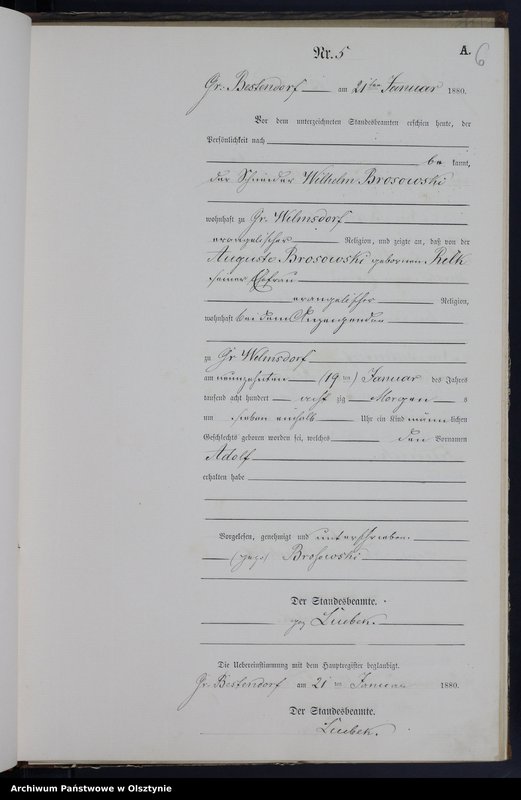 Nr. 5
A. 6
Gr. Bestendorf am 21ten Januar 1880.
Vor dem unterzeichneten Standesbeamten erschien heute, der
Persönlichkeit nach
be kannt,
der Schneider Wilhelm Brosowski
wohnhaft zu Gr. Wilmsdorf
evangelischer Religion, und zeigte an, daß von der
Auguste Brosowski geborenen Relk
seiner Ehefrau
evangelischer Religion,
wohnhaft bei dem Anzeigenden
zu Gr Wilmsdorf
am neunzehnten (19 ten) Januar des Jahres
tausend acht hundert acht zig Morgen s
um sieben einhalb Uhr ein Kind männ lichen
Geschlechts geboren worden sei, welches den Vornamen
Adolf
erhalten habe
Vorgelesen, genehmigt und unterschrieben.
(gez) Brosowski
Der Standesbeamte.
gez Liebek.
Die Uebereinstimmung mit dem Hauptregister beglaubigt.
Gr. Bestendorf am 21 ten Januar 1880.
Der Standesbeamte.
Liebek.
Archiwum Państwowe w Olsztynie